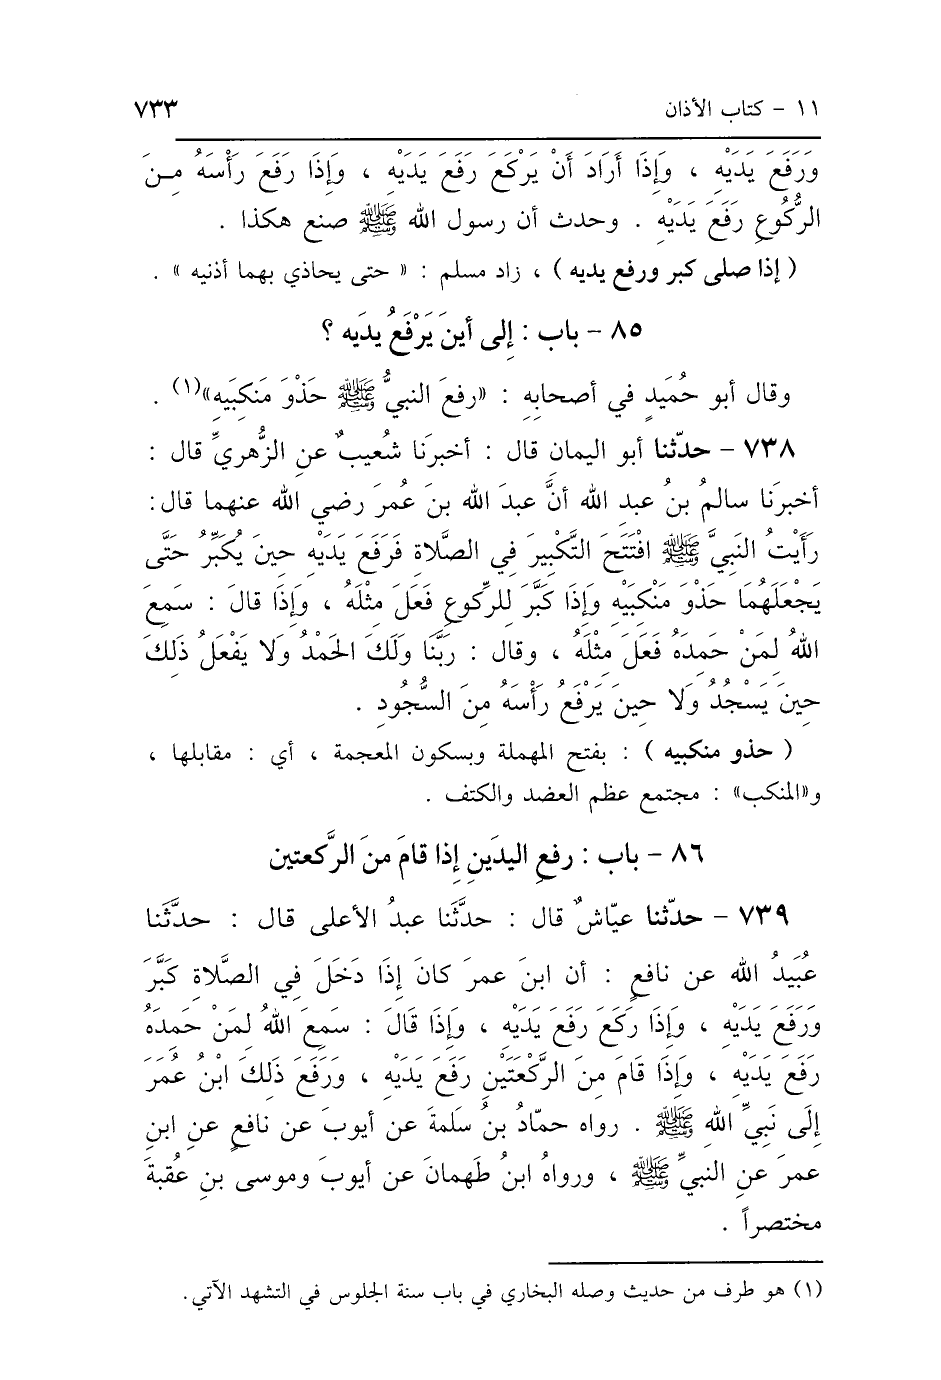 ١١ - كتاب الأذان ٧٣٣
وَرَفَعَ يَدَيْهِ ، وَإِذَا أَرَادَ أَنْ يَرْكَعَ رَفَعَ يَدَيْهِ ، وَإِذَا رَفَعَ رَأْسَهُ مِـنَ
الرُّكُوعِ رَفَعَ يَدَيْهِ . وحدث أن رسول الله ﷺ صنع هكذا .
( إذا صلى كبر ورفع يديه ) ، زاد مسلم : « حتى يحاذي بهما أذنيه » .
٨٥ - باب : إِلى أينَ يَرْفَعُ يدَيه ؟
وقال أبو حُمَيدٍ في أصحابِه : «رفعَ النبيُّ ﷺ حَذْوَ مَنكبَيه»(١) .
٧٣٨ - حدّثنا أبو اليمان قال : أخبرَنا شُعيبٌ عنِ الزُّهريِّ قال :
أخبرَنا سالمُ بنُ عبدِ الله أنَّ عبدَ الله بنَ عُمرَ رضي الله عنهما قال :
رَأَيْتُ النَبيَّ ﷺ افْتَتَحَ التَّكْبِيرَ فِي الصَّلاةِ فَرَفَعَ يَدَيْهِ حينَ يُكَبِّرُ حَتَّى
يَجْعَلَهُمَا حَذْوَ مَنْكِبَيْهِ وَإِذَا كَبَّرَ لِلرُّكوعِ فَعَلَ مِثْلَهُ ، وَإِذَا قالَ : سَمِعَ
اللهُ لِمَنْ حَمِدَهُ فَعَلَ مِثْلَهُ ، وقال : رَبَّنَا وَلَكَ الحَمْدُ وَلا يَفْعَلُ ذَلِكَ
حِينَ يَسْجُدُ وَلا حينَ يَرْفَعُ رَأْسَهُ مِنَ السُّجُودِ .
( حذو منكبيه ) : بفتح المهملة وبسكون المعجمة ، أي : مقابلها ،
و«المنكب» : مجتمع عظم العضد والكتف .
٨٦ - باب : رفعِ اليدَينِ إِذا قامَ منَ الرَّكعتين
٧٣٩ - حدّثنا عيّاشٌ قال : حدَّثَنا عبدُ الأعلى قال : حدَّثَنا
عُبَيدُ الله عن نافعٍ : أن ابنَ عمرَ كانَ إِذَا دَخَلَ فِي الصَّلاةِ كَبَّرَ
وَرَفَعَ يَدَيْهِ ، وَإِذَا رَكَعَ رَفَعَ يَدَيْهِ ، وَإِذَا قَالَ : سَمِعَ اللهُ لِمَنْ حَمِدَهُ
رَفَعَ يَدَيْهِ ، وَإِذَا قَامَ مِنَ الرَّكْعَتَيْنِ رَفَعَ يَدَيْهِ ، وَرَفَعَ ذَلِكَ ابْنُ عُمَرَ
إِلَى نَبِيِّ اللهِ ﷺ . رواه حمّادُ بنُ سَلمةَ عن أيوبَ عن نافعٍ عنِ ابنِ
عمرَ عنِ النبيِّ ﷺ ، ورواهُ ابنُ طَهمانَ عن أيوبَ وموسى بنِ عُقبةَ
مختصراً .
(١) هو طرف من حديث وصله البخاري في باب سنة الجلوس في التشهد الآتي.